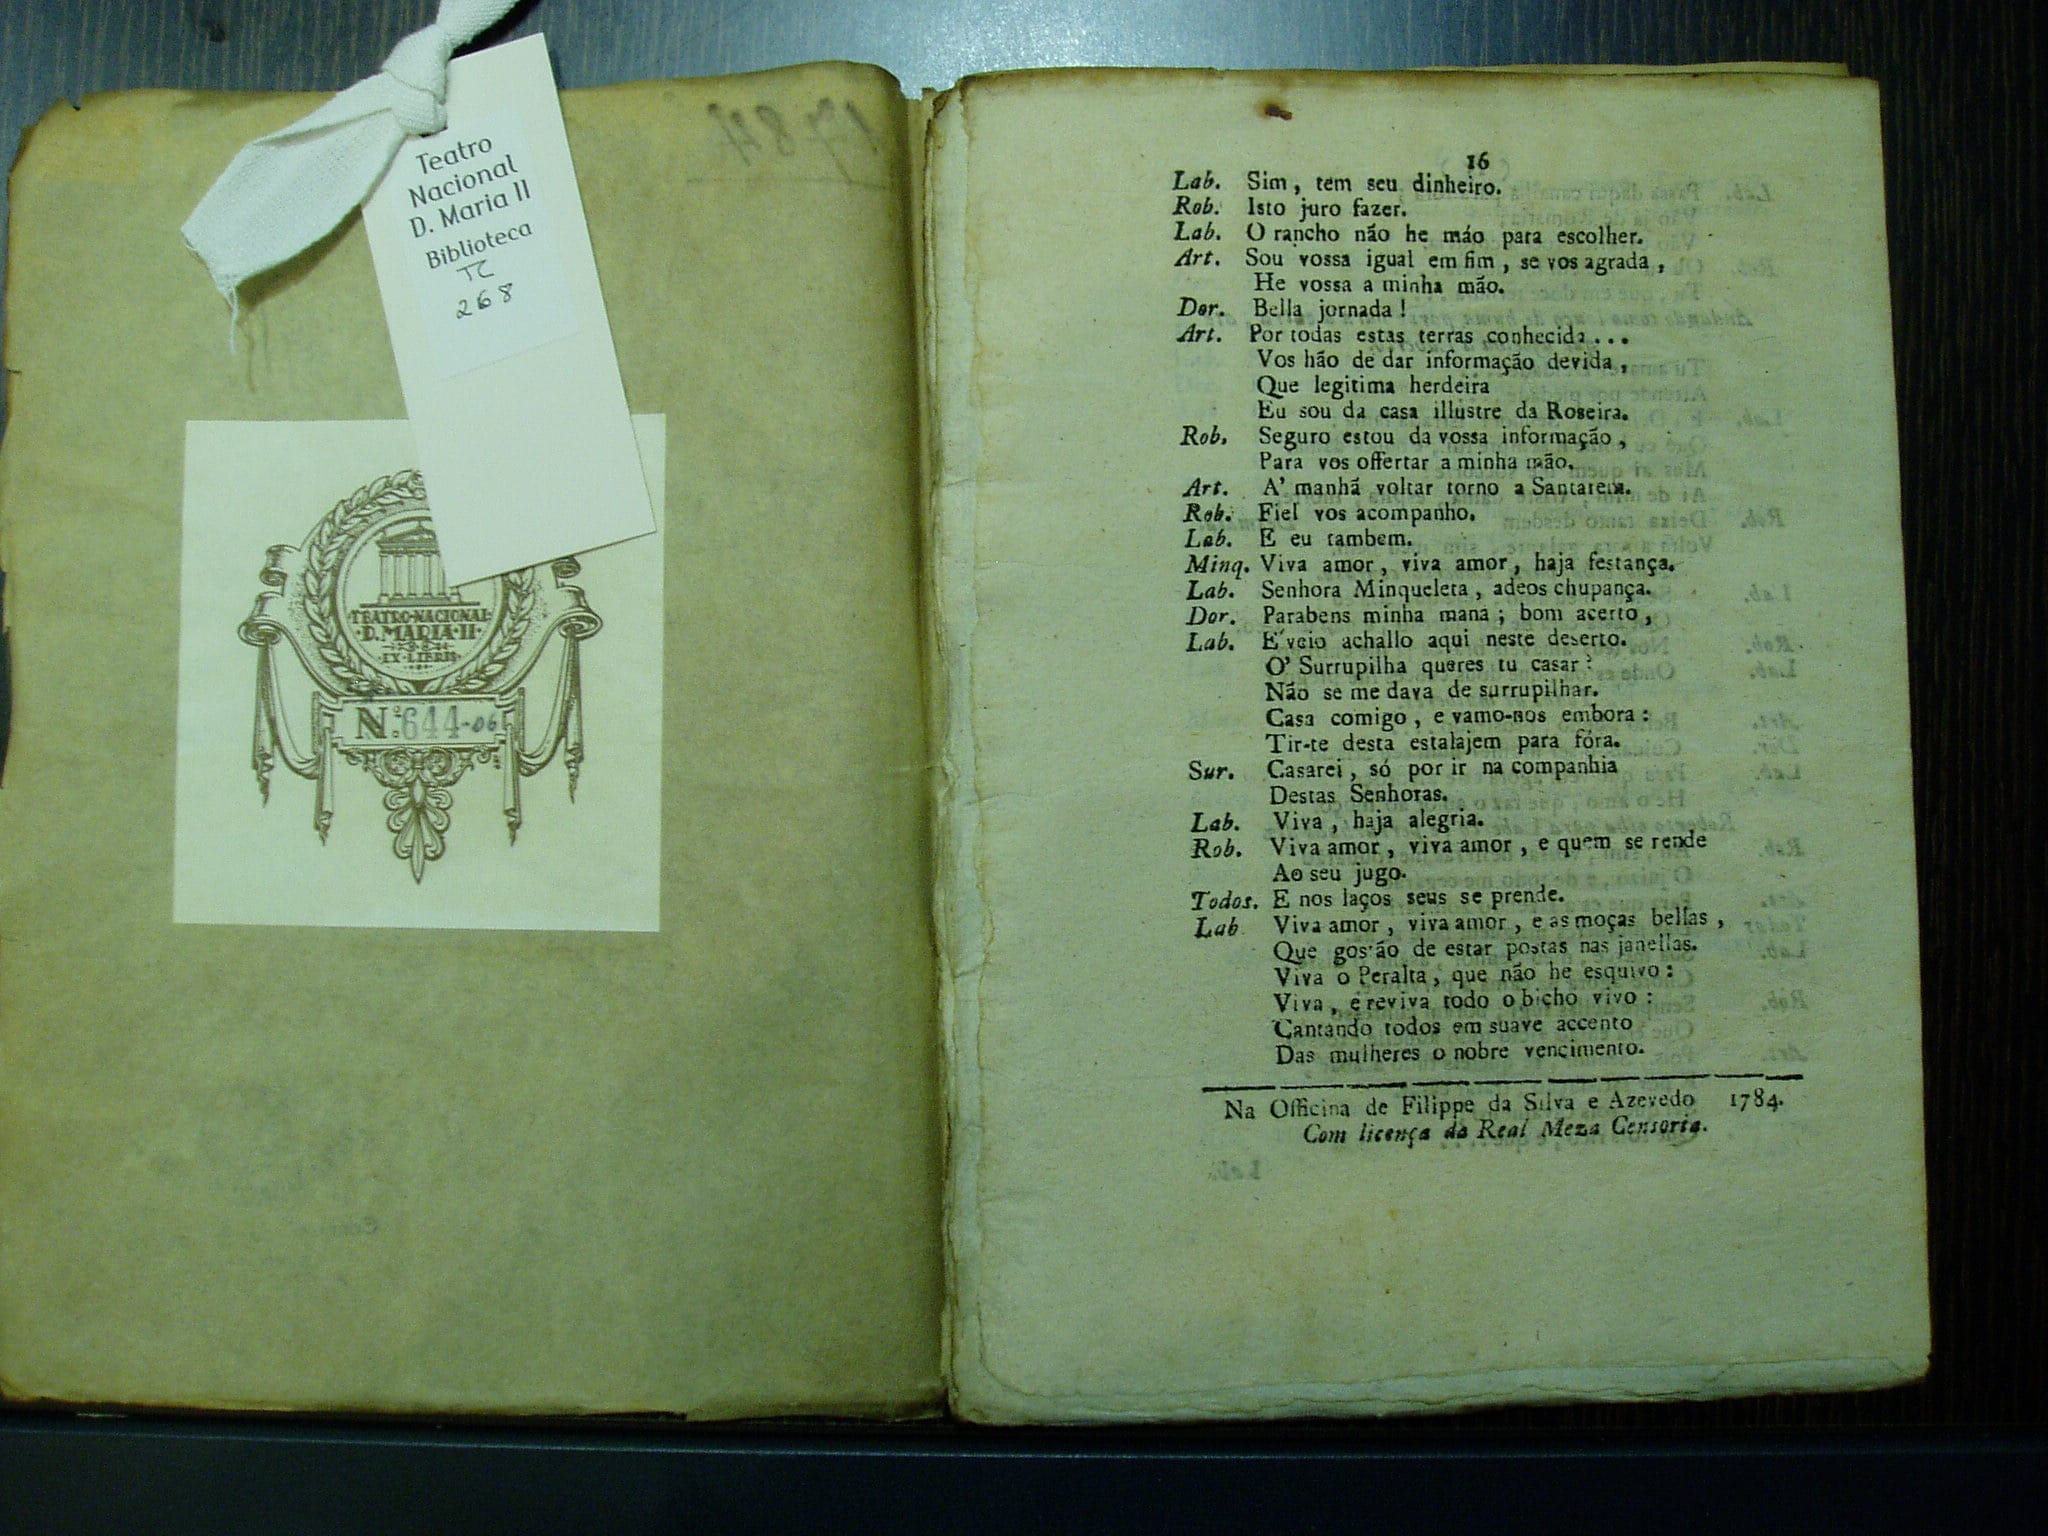 Teatro
Nacional
D. Maria II
Biblioteca
TC
268
1784
TEATRO·NACIONAL
·D.MARIA·II·
EX·LIBRIS
Nº 644-06
16
Lab. Sim, tem seu dinheiro.
Rob. Isto juro fazer.
Lab. O rancho não he máo para escolher.
Art. Sou vossa igual em fim, se vos agrada,
He vossa a minha mão.
Dor. Bella jornada!
Art. Por todas estas terras conhecida...
Vos hão de dar informação devida,
Que legitima herdeira
Eu sou da casa illustre da Roseira.
Rob. Seguro estou da vossa informação,
Para vos offertar a minha mão.
Art. A' manhã voltar torno a Santarem.
Rob. Fiel vos acompanho.
Lab. E eu tambem.
Minq. Viva amor, viva amor, haja festança.
Lab. Senhora Minqueleta, adeos chupança.
Dor. Parabens minha mana; bom acerto,
Lab. E veio achallo aqui neste deserto.
O' Surrupilha queres tu casar?
Não se me dava de surrupilhar.
Casa comigo, e vamo-nos embora:
Tir-te desta estalajem para fóra.
Sur. Casarei, só por ir na companhia
Destas Senhoras.
Lab. Viva, haja alegria.
Rob. Viva amor, viva amor, e quem se rende
Ao seu jugo.
Todos. E nos laços seus se prende.
Lab Viva amor, viva amor, e as moças bellas,
Que gostão de estar postas nas janellas.
Viva o Peralta, que não he esquivo:
Viva, e reviva todo o bicho vivo:
Cantando todos em suave accento
Das mulheres o nobre vencimento.
Na Officina de Filippe da Silva e Azevedo 1784.
Com licença da Real Meza Censoria.